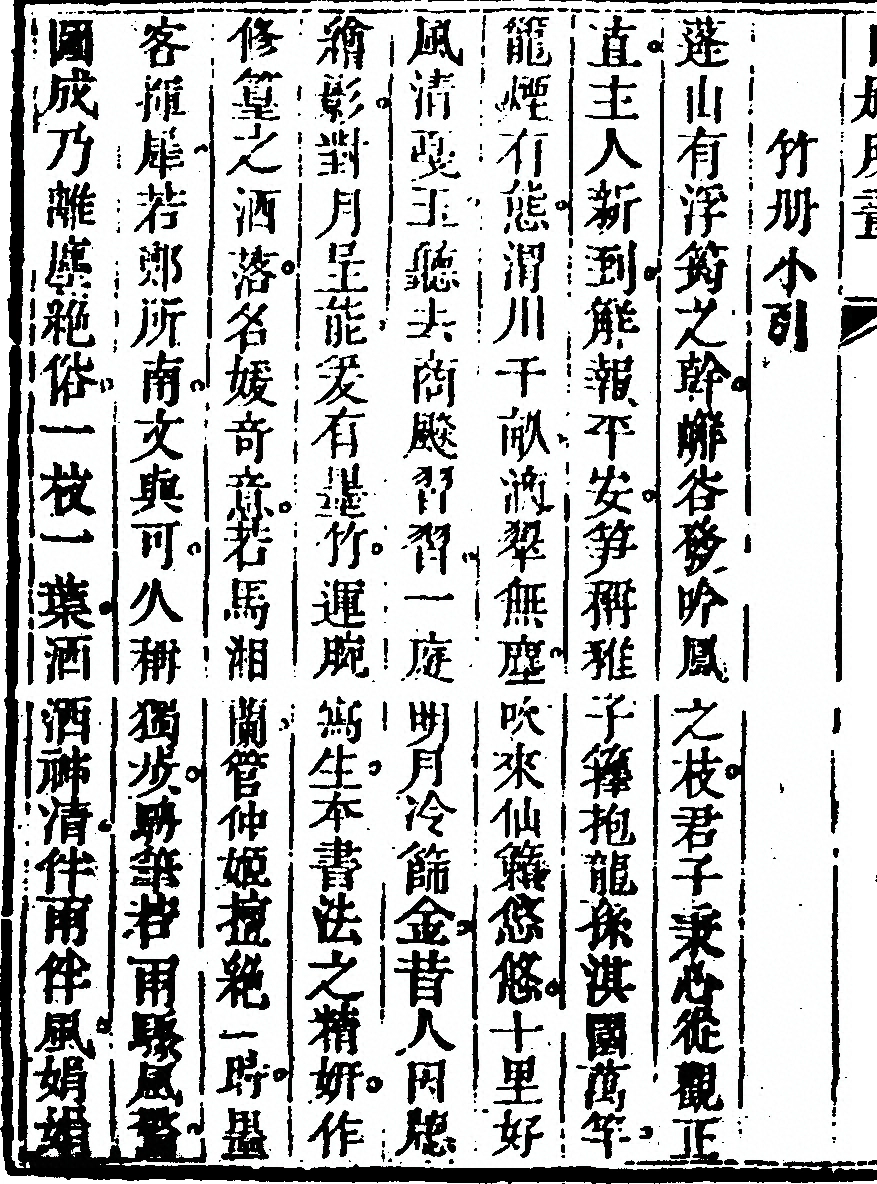 竹册小引
蓬山有浮筠之幹。嶰谷發吟鳳之枝。君子秉心從觀正
直。主人新到。能報平安。笋稱稚子。籜抱龍孫。淇國萬竿。
籠煙有態。渭川千畝。滴翠無塵。吹來仙籟悠悠。十里好
風清戞玉。聽去商飈習習。一庭明月冷篩金。昔人因牕
繪影。對月呈能。爰有墨竹。運腕寫生。本書法之精妍。作
修篁之洒落。名媛奇意。若馬湘蘭。管仲姬擅絕一時。墨
客揮犀。若鄭所南。文與可。人稱獨步。騁筆若雨驟風驚。
圖成乃離塵絕俗。一枝一葉。洒洒神清。伴雨伴風。娟娟